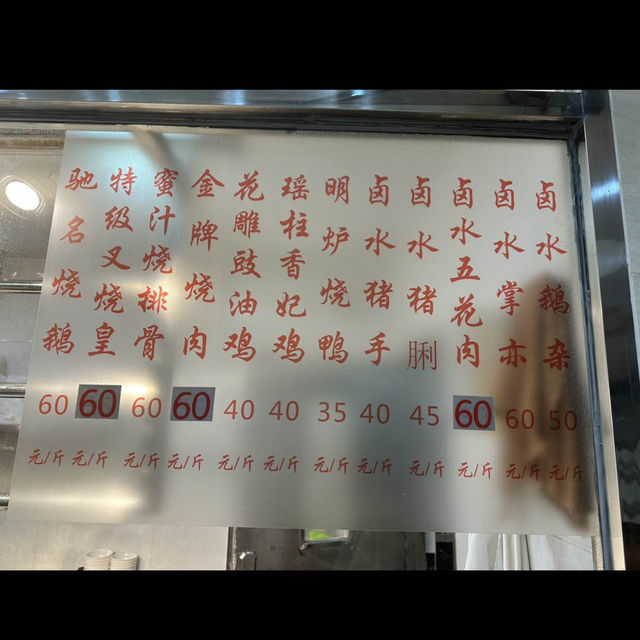 驰名烧鹅
特级叉烧皇
蜜汁烧排骨
金牌烧肉
花雕豉油鸡
瑶柱香妃鸡
明炉烧鸭
卤水猪手
卤水猪脷
卤水五花肉
卤水掌亦
卤水鹅杂
60 60 60 60 40 40 35 40 45 60 60 50
元/斤 元/斤 元/斤 元/斤 元/斤 元/斤 元/斤 元/斤 元/斤 元/斤 元/斤 元/斤